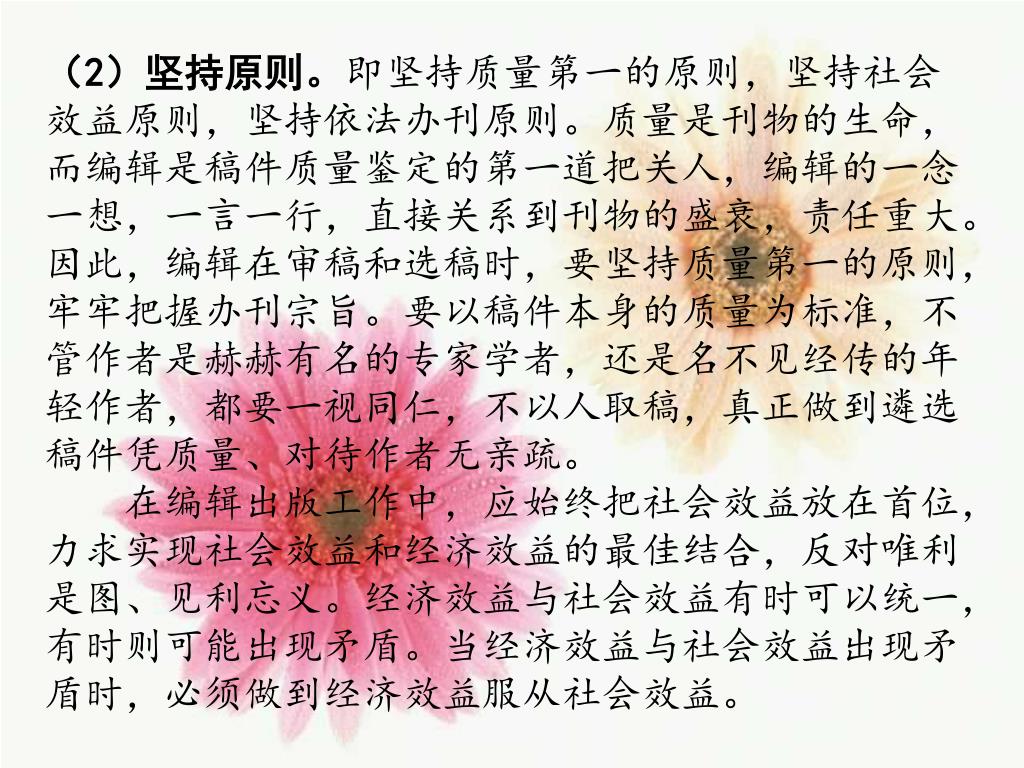 （2）坚持原则。即坚持质量第一的原则，坚持社会
效益原则，坚持依法办刊原则。质量是刊物的生命，
而编辑是稿件质量鉴定的第一道把关人，编辑的一念
一想，一言一行，直接关系到刊物的盛衰，责任重大。
因此，编辑在审稿和选稿时，要坚持质量第一的原则，
牢牢把握办刊宗旨。要以稿件本身的质量为标准，不
管作者是赫赫有名的专家学者，还是名不见经传的年
轻作者，都要一视同仁，不以人取稿，真正做到遴选
稿件凭质量、对待作者无亲疏。
在编辑出版工作中，应始终把社会效益放在首位，
力求实现社会效益和经济效益的最佳结合，反对唯利
是图、见利忘义。经济效益与社会效益有时可以统一，
有时则可能出现矛盾。当经济效益与社会效益出现矛
盾时，必须做到经济效益服从社会效益。